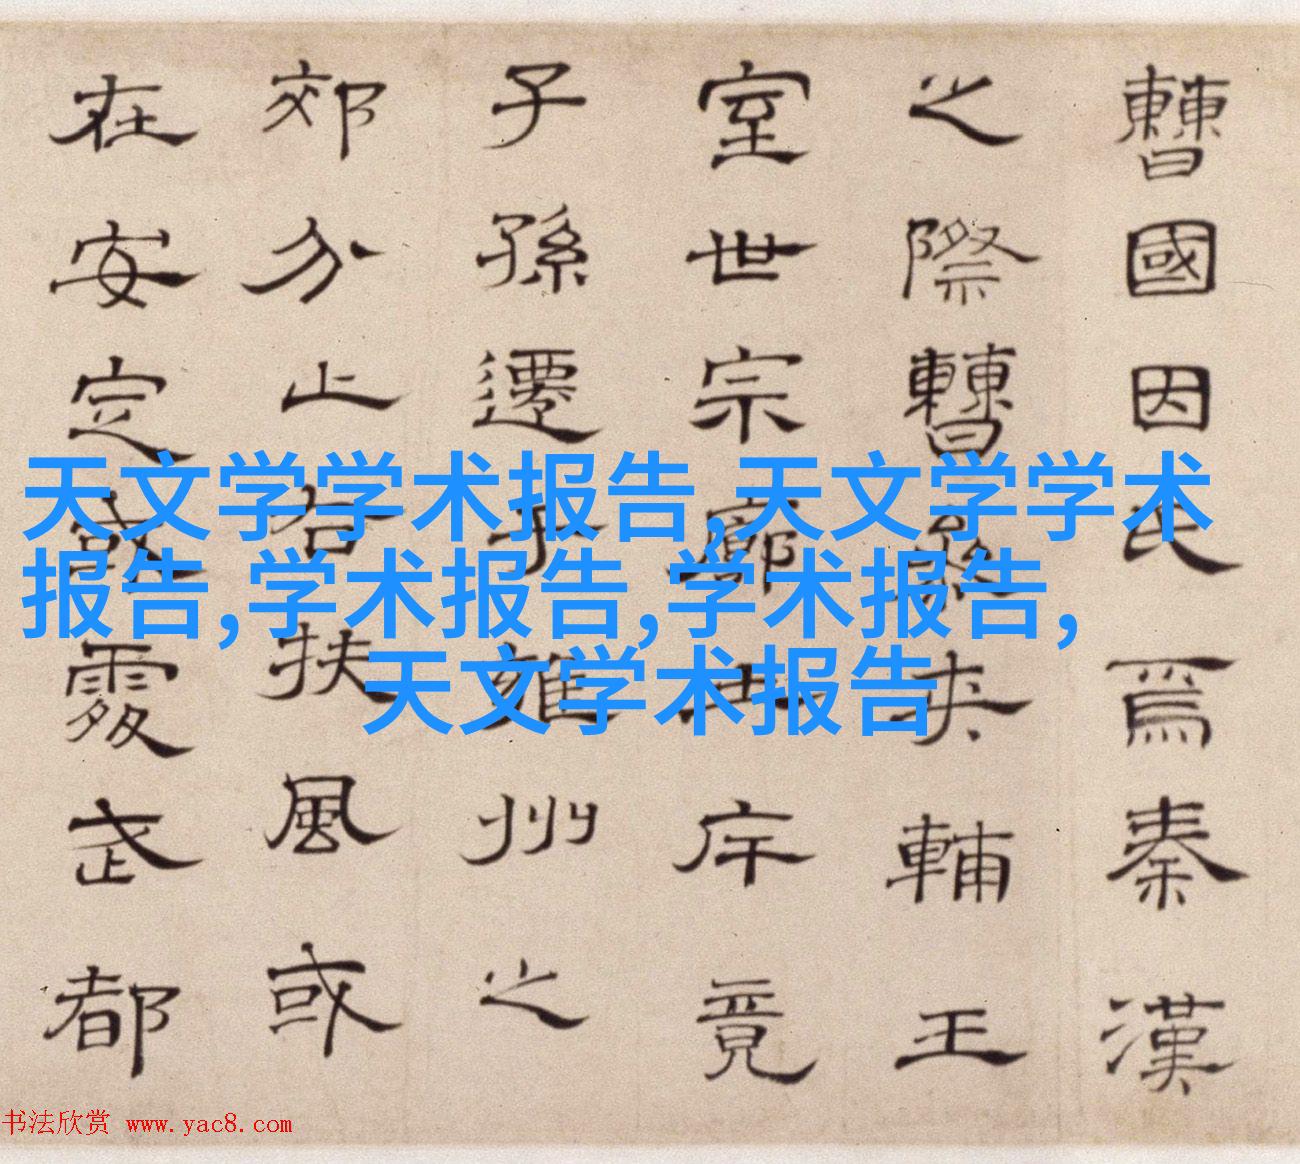 曹國因氏焉秦漢
之際曹參夾輔王
室世宗廓土斥竟
子孫遷于雍州之
郊分止右扶風或
在安定或處武都
天文学学术报告,天文学学术
报告,学术报告,学术报告,
天文学术报告
书法欣赏 www.yac8.com